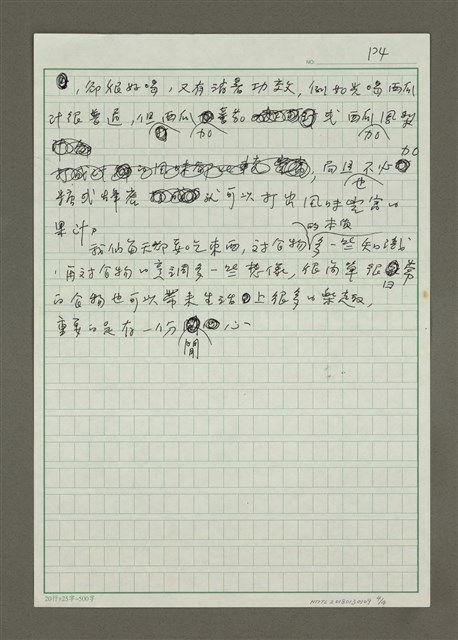 NO.
P4
，卻很好喝，又有消暑功效，例如光喝西瓜
汁很普通，但西瓜加薑加或西瓜鳳梨
，而且也不必加
糖或蜂蜜就可以打出風味豐富的
果汁。
我們每天都要吃東西，對食物的本質多一些知識
，再對食物的烹調多一些想像，很簡單很日常
的食物也可以帶來生活上很多的樂趣，
重要的是有一份閒心
20行×25字=500字